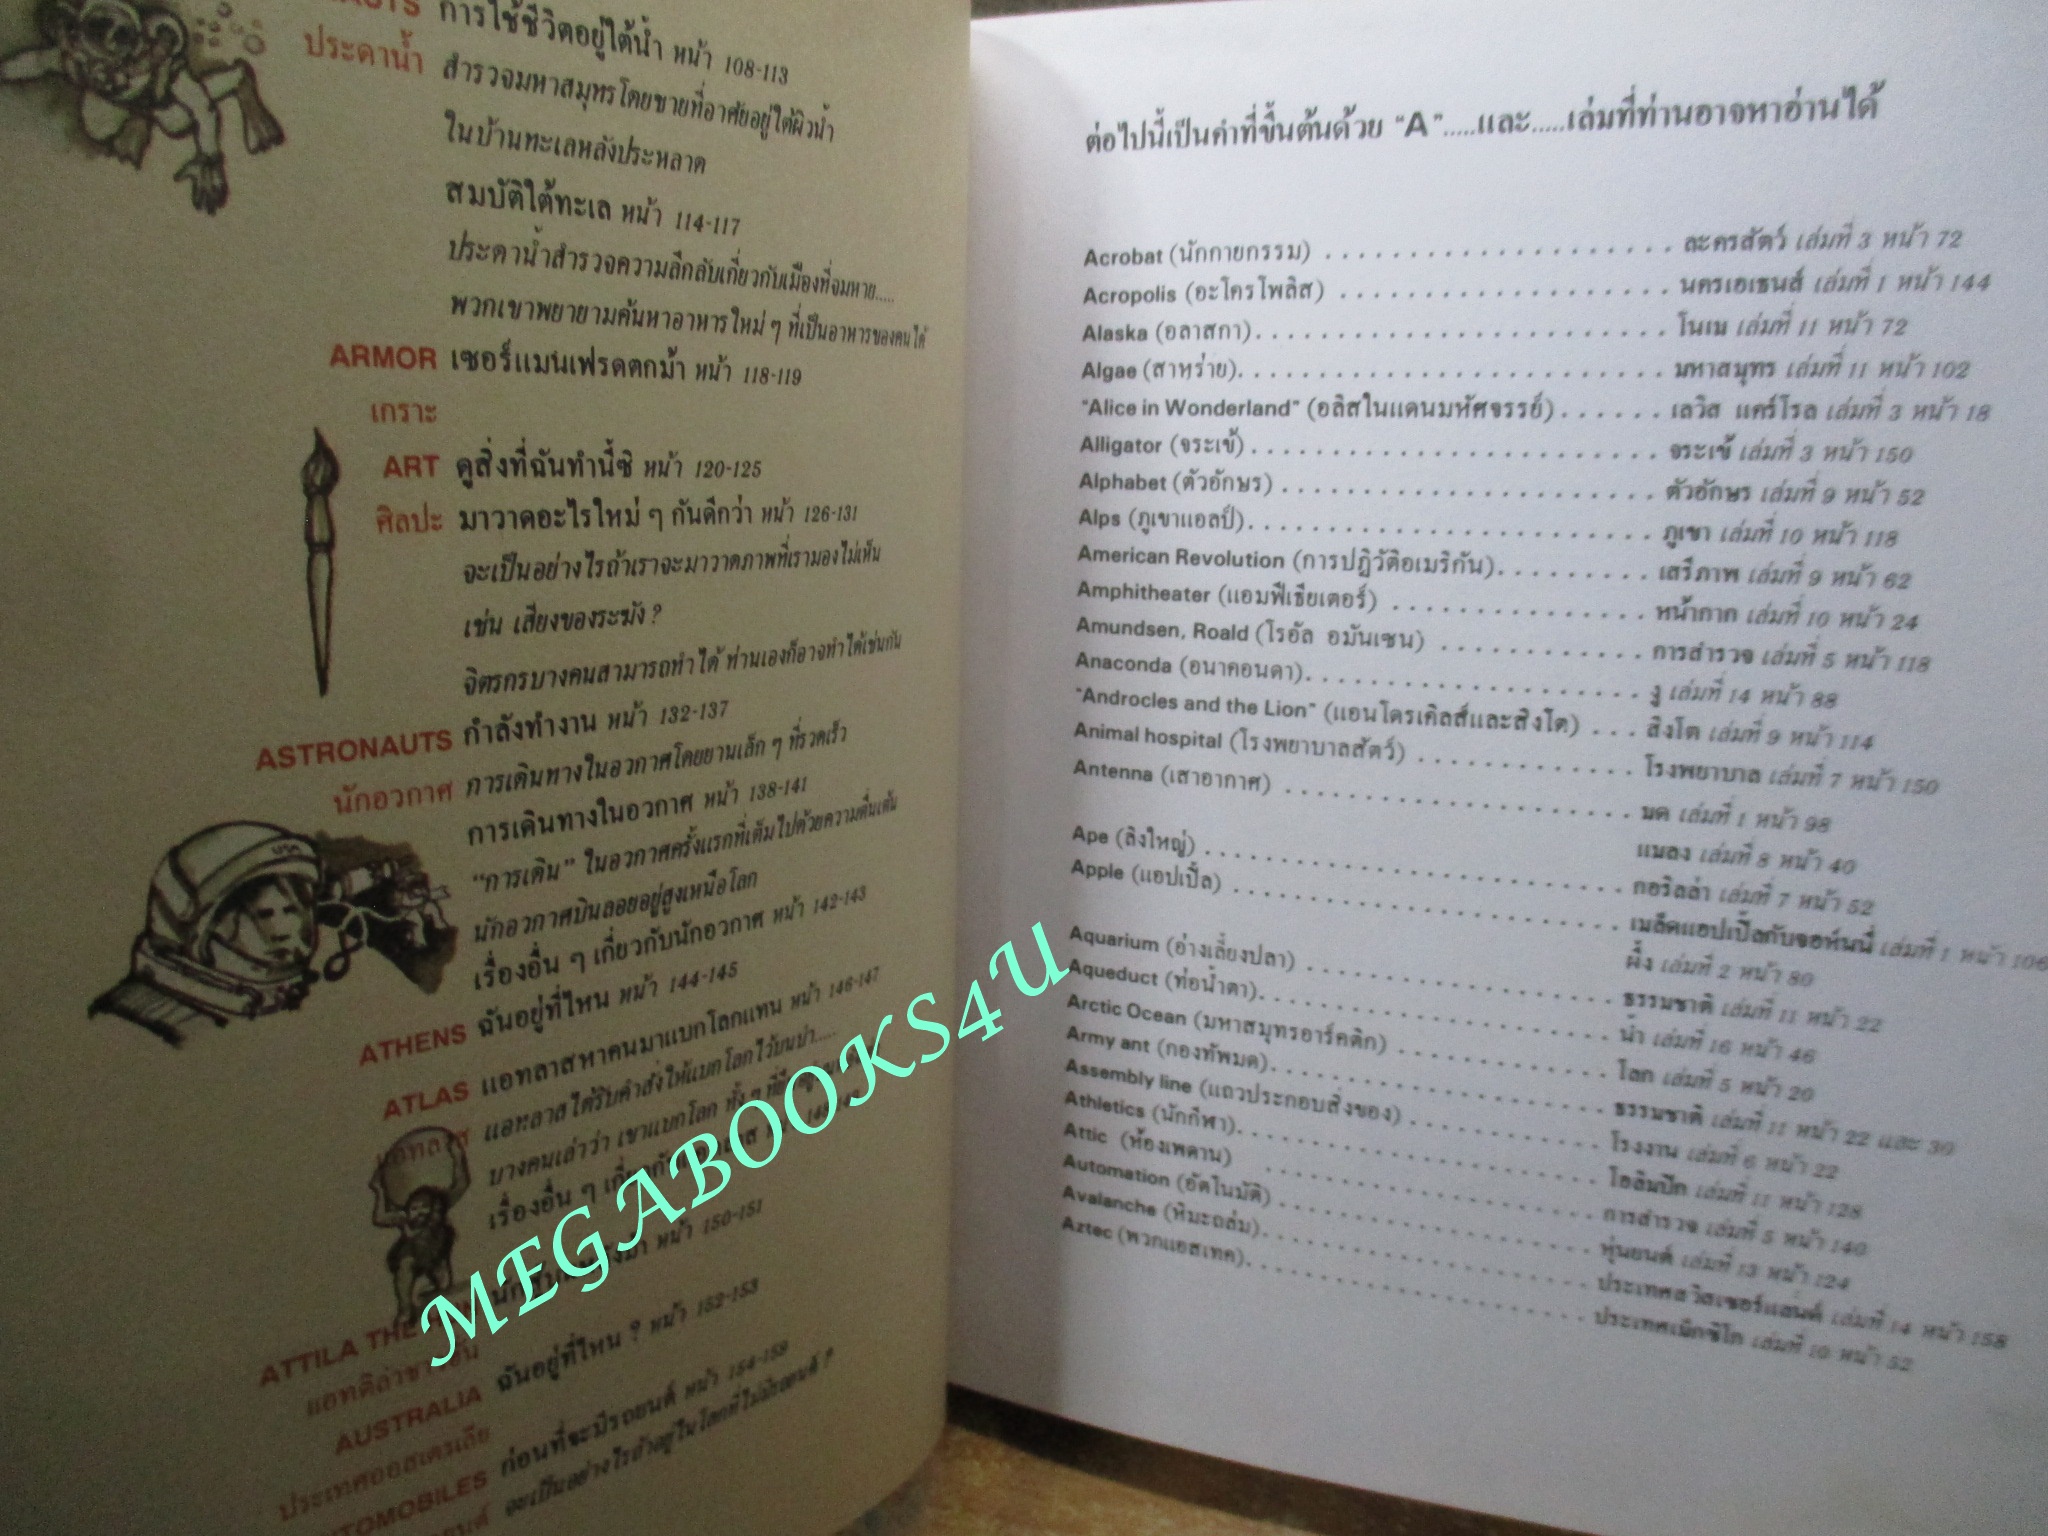 การใช้ชีวิตอยู่ใต้น้ำ หน้า 108-113
ประดาน้ำ สำรวจมหาสมุทรโดยชายที่อาศัยอยู่ใต้ผิวน้ำ
ในบ้านทะเลหลังประหลาด
สมบัติใต้ทะเล หน้า 114-117
ประดาน้ำสำรวจความลึกลับเกี่ยวกับเมืองที่จมหาย.....
พวกเขาพยายามค้นหาอาหารใหม่ ๆ ที่เป็นอาหารของคนได้
ARMOR เซอร์แมนเฟรดตกม้า หน้า 118-119
เกราะ
ART ดูสิ่งที่ฉันทำนี้ซิ หน้า 120-125
ศิลปะ มาวาดอะไรใหม่ ๆ กันดีกว่า หน้า 126-131
จะเป็นอย่างไรถ้าเราจะมาวาดภาพที่เรามองไม่เห็น
เช่น เสียงของระฆัง ?
จิตรกรบางคนสามารถทำได้ ท่านเองก็อาจทำได้เช่นกัน
ASTRONAUTS กำลังทำงาน หน้า 132-137
นักอวกาศ การเดินทางในอวกาศโดยยานเล็ก ๆ ที่รวดเร็ว
การเดินทางในอวกาศ หน้า 138-141
“การเดิน” ในอวกาศครั้งแรกที่เต็มไปด้วยความตื่นเต้น
นักอวกาศบินลอยอยู่สูงเหนือโลก
เรื่องอื่น ๆ เกี่ยวกับนักอวกาศ หน้า 142-143
ATHENS ฉันอยู่ที่ไหน หน้า 144-145
ATLAS แอทลาสหาคนมาแบกโลกแทน หน้า 146-147
แอทลาส แอทลาสได้รับคำสั่งให้แบกโลกไว้บนบ่า.....
บางคนเล่าว่า เขาแบกโลก ทั้ง ๆ ที่
เรื่องอื่น ๆ
ATTILA THE หน้า 150-151
AUSTRALIA ฉันอยู่ที่ไหน ? หน้า 152-153
ประเทศออสเตรเลีย
ก่อนที่จะมีรถยนต์ หน้า 154-159
จะเป็นอย่างไรถ้าอยู่ในโลกที่ไม่มีรถยนต์ ?
MEGABOOKS4U
ต่อไปนี้เป็นคำที่ขึ้นต้นด้วย “A”.....และ.....เล่มที่ท่านอาจหาอ่านได้
Acrobat (นักกายกรรม) ละครสัตว์ เล่มที่ 3 หน้า 72
Acropolis (อะโครโพลิส) นครเอเธนส์ เล่มที่ 1 หน้า 144
Alaska (อลาสกา) โนเม เล่มที่ 11 หน้า 72
Algae (สาหร่าย) มหาสมุทร เล่มที่ 11 หน้า 102
"Alice in Wonderland" (อลิสในแดนมหัศจรรย์) เลวิส แคร์โรล เล่มที่ 3 หน้า 18
Alligator (จระเข้) จระเข้ เล่มที่ 3 หน้า 150
Alphabet (ตัวอักษร) ตัวอักษร เล่มที่ 9 หน้า 52
Alps (ภูเขาแอลป์) ภูเขา เล่มที่ 10 หน้า 118
American Revolution (การปฏิวัติอเมริกัน) เสรีภาพ เล่มที่ 9 หน้า 62
Amphitheater (แอมฟิเธียเตอร์) หน้ากาก เล่มที่ 10 หน้า 24
Amundsen, Roald (โรอัล อมันเซน) การสำรวจ เล่มที่ 5 หน้า 118
Anaconda (อนาคอนดา) งู เล่มที่ 14 หน้า 88
"Androcles and the Lion" (แอนโดรเคิลส์และสิงโต) สิงโต เล่มที่ 9 หน้า 114
Animal hospital (โรงพยาบาลสัตว์) โรงพยาบาล เล่มที่ 7 หน้า 150
Antenna (เสาอากาศ) มด เล่มที่ 1 หน้า 98
แมลง เล่มที่ 8 หน้า 40
Ape (ลิงใหญ่) กอริลล่า เล่มที่ 7 หน้า 52
Apple (แอปเปิ้ล) เมล็ดแอปเปิ้ลกับจอห์นนี่ เล่มที่ 1 หน้า 106
ผึ้ง เล่มที่ 2 หน้า 80
Aquarium (อ่างเลี้ยงปลา) ธรรมชาติ เล่มที่ 11 หน้า 22
Aqueduct (ท่อน้ำตา) น้ำ เล่มที่ 16 หน้า 46
Arctic Ocean (มหาสมุทรอาร์คติก) โลก เล่มที่ 5 หน้า 20
Army ant (กองทัพมด) ธรรมชาติ เล่มที่ 11 หน้า 22 และ 30
Assembly line (แถวประกอบสิ่งของ) โรงงาน เล่มที่ 6 หน้า 22
Athletics (นักกีฬา) โอลิมปิก เล่มที่ 11 หน้า 128
Attic (ห้องเพดาน) การสำรวจ เล่มที่ 5 หน้า 140
Automation (อัตโนมัติ) หุ่นยนต์ เล่มที่ 13 หน้า 124
Avalanche (หิมะถล่ม) ประเทศสวิสเซอร์แลนด์ เล่มที่ 14 หน้า 158
Aztec (พวกแอสเทค) ประเทศเม็กซิโก เล่มที่ 10 หน้า 52